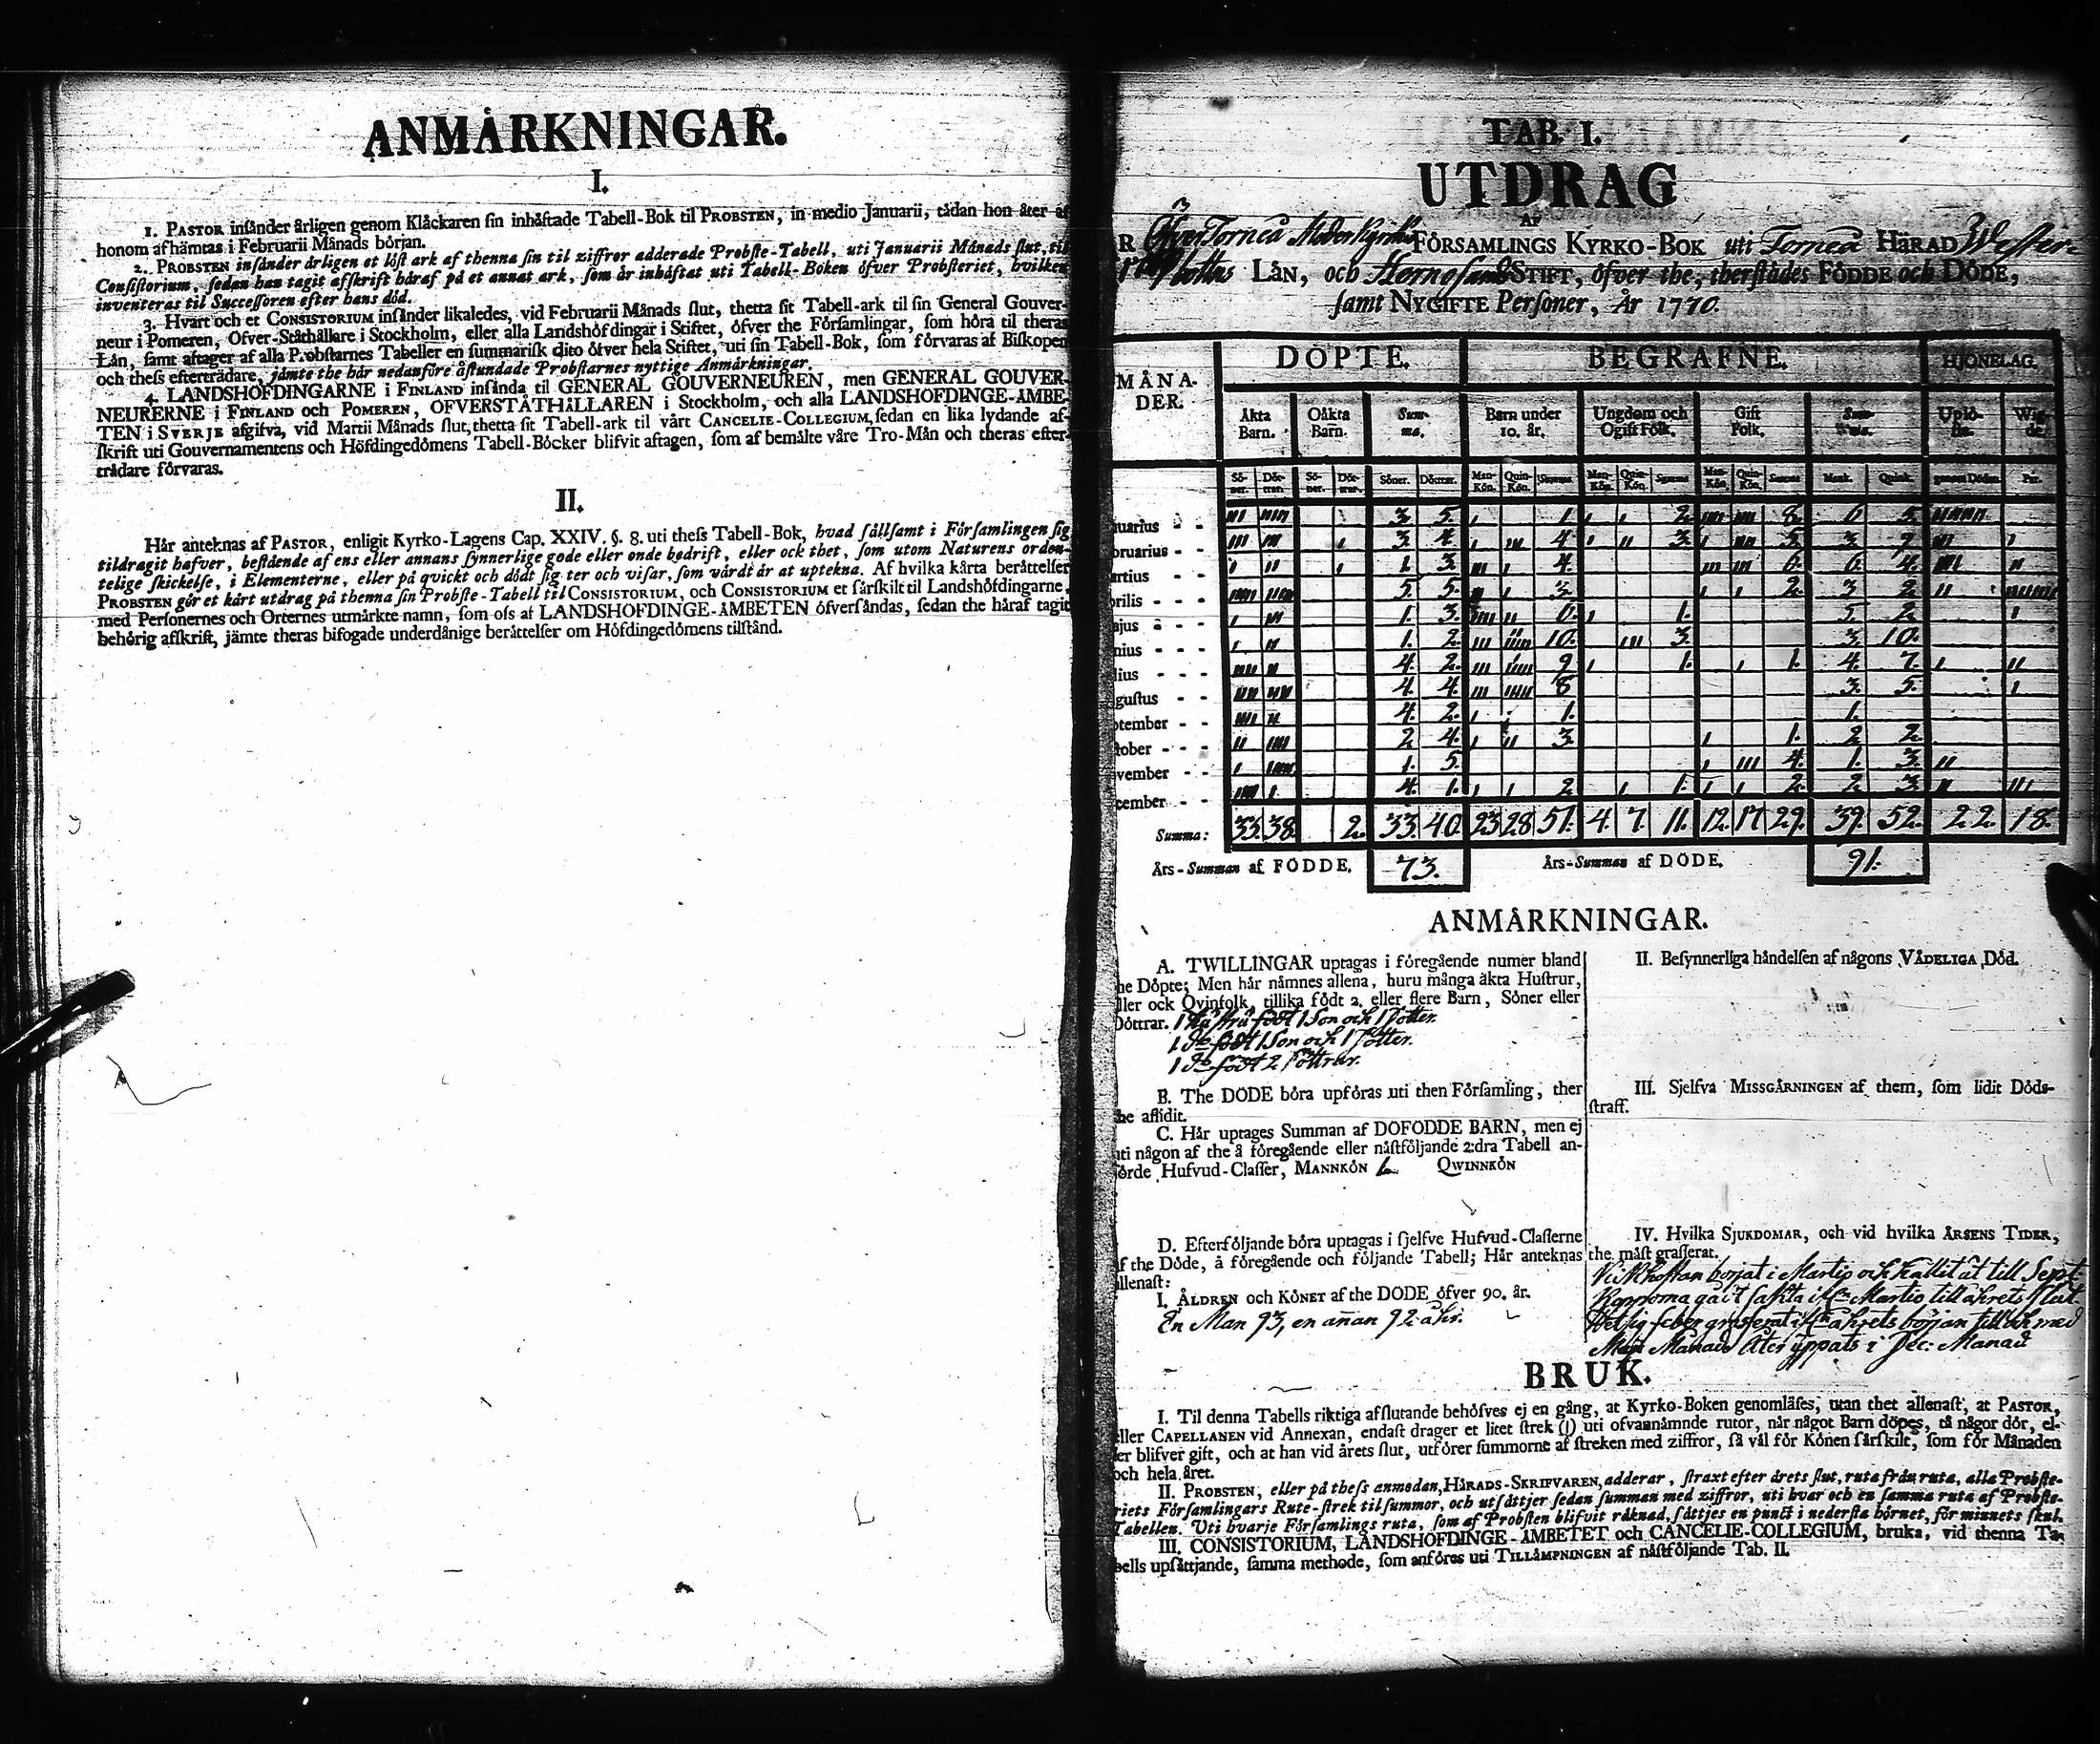 ANMÅRKNINGAR.
I.
1. PASTOR insånder årligen genom Klåckaren sin inhåftade Tabell-Bok til PROBSTEN, in medio Januarii, tådan hon åter af
honom afhåmtas i Februarii Månads början.
2. PROBSTEN insånder årligen et löst ark af thenna sin til ziffror adderade Probste-Tabell, uti Januarii Månads slut, til
Consistorium, sedan han tagit afskrift håraf på et annat ark, som år inhåftat uti Tabell-Boken öfver Probsteriet, hvilken
inventeras til Successoren efter hans död.
3. Hvart och et CONSISTORIUM insånder likaledes, vid Februarii Månads slut, thetta sit Tabell-ark til sin General Gouver-
neur i Pomeren, Öfver-Ståthållare i Stockholm, eller alla Landshöfdingar i Stiftet, öfver the Församlingar, som höra til theras
Lån, samt aftager af alla Probstarnes Tabeller en summarisk dito öfver hela Stiftet, uti sin Tabell-Bok, som förvaras af Biskopen
och thess eftertrådare, jåmte the hår nedanföre åstundade Probstarnes nyttige Anmårkningar.
4. LANDSHÖFDINGARNE i FINLAND insånda til GENERAL GOUVERNEUREN, men GENERAL GOUVER-
NEURERNE i FINLAND och POMEREN, ÖFVERSTÅTHÅLLAREN i Stockholm, och alla LANDSHÖFDINGE-ÅMBE-
TEN i SVERJE afgifva, vid Martii Månads slut, thetta sit Tabell-ark til vårt CANCELIE-COLLEGIUM, sedan en lika lydande af-
skrift uti Gouvernamentens och Höfdingedömens Tabell-Böcker blifvit aftagen, som af bemålte våre Tro-Mån och theras efter-
trådare förvaras.
II.
Hår anteknas af PASTOR, enligit Kyrko-Lagens Cap. XXIV. §. 8. uti thess Tabell-Bok, hvad sållsamt i Församlingen sig
tildragit hafver, bestående af ens eller annans synnerlige gode eller onde bedrift, eller ock thet, som utom Naturens orden-
telige skickelse, i Elementerne, eller på qvickt och dödt sig ter och visar, som vårdt år at uptekna. Af hvilka kårta beråttelser
PROBSTEN gör et kårt utdrag på thenna sin Probste-Tabell til CONSISTORIUM, och CONSISTORIUM et sårskilt til Landshöfdingarne,
med Personernes och Orternes utmårkte namn, som oss af LANDSHÖFDINGE-ÅMBETEN öfversåndas, sedan the håraf tagit
behörig afskrift, jåmte theras bifogade underdånige beråttelser om Höfdingedömens tilstånd.
TAB. I.
UTDRAG
AF
Öfver Torneå Moder Kyrkio FÖRSAMLINGS KYRKO-BOK uti Torneå HÄRAD Wester-
bottns LÅN, och Hernösands STIFT, öfver the, therstådes FÖDDE och DÖDE,
samt NYGIFTE Personer, År 1770.
MÅNA-DER. DÖPTE. BEGRAFNE. HJONELAG.
Åkta Barn. Oåkta Barn. Summa. Barn under 10. år. Ungdom och Ogift Folk. Gift Folk. Summa. Uplö-ste. Wig-de.
Sö-ner. Döt-trar. Sö-ner. Döt-trar. Söner. Döttrar. Man-Kön. Quin-Kön. Summa Man-Kön. Quin-Kön. Summa Man-Kön. Quin-Kön. Summa Mank. Quink. genom Döden. Par.
uarius - - 3. 5. 1. 2. 8. 5.
bruarius - - 3. 4. 4. 3. 5. 3. 9.
artius - - 1. 3. 4. 6. 6. 4.
prilis - - 5. 5. 3. 2. 3. 2.
ajus - - 1. 3. 6. 1. 5. 2.
nius - - - 1. 2. 10. 3. 3. 10.
lius - - - 4. 2. 9. 1. 1. 4. 7.
gustus - - 4. 4. 8 3. 5.
ptember - - 4. 2. 1. 1.
tober - - - 2 4. 3. 1. 2. 2.
vember - - 1. 5. 4. 1. 3.
cember - - 4. 1. 2 1. 2. 2. 3.
Summa: 33. 38. 2. 33. 40. 23 28 51. 4. 7. 11. 12. 17 29. 39. 52. 22. 18.
Års-Summan af FÖDDE. 73. Års-Summan af DÖDE. 91.
ANMÅRKNINGAR.
A. TWILLINGAR uptagas i föregående numer bland
he Döpte; Men hår nåmnes allena, huru många åkta Hustrur,
ller ock Qvinfolk, tillika födt 2. eller flere Barn, Söner eller
Döttrar. 1 Hustru födt 1 Son och 1 Dotter.
1 Do födt 1 Son och 1 Dotter.
1 Do födt 2 Döttrar.
B. The DÖDE böra upföras uti then Församling, ther
he aflidit.
C. Hår uptages Summan af DÖFÖDDE BARN, men ej
uti någon af the å föregående eller nåstföljande 2:dra Tabell an-
förde Hufvud-Classer, MANNKÖN QWINNKÖN
D. Efterföljande böra uptagas i sjelfve Hufvud-Classerne
af the Döde, å föregående och följande Tabell; Hår anteknas
allenast:
I. ÅLDREN och KÖNET af the DÖDE öfver 90. år.
En Man 93, en annan 92 åhr.
II. Besynnerliga håndelsen af någons VÅDELIGA Död.
III. Sjelfva MISSGÅRNINGEN af them, som lidit Döds-
straff.
IV. Hvilka SJUKDOMAR, och vid hvilka ÅRSENS TIDER,
the måst grasserat.
Kikhostan börjat i Martio och hållit åt till Sept.
Kopporna gådt sakta ifrn Martio till åhrets slut
Hetsig feber grasserat ifrn åhrets början till och med
Maji Månad Åter yppats i Dec: Månad
BRUK.
I. Til denna Tabells riktiga afslutande behöfves ej en gång, at Kyrko-Boken genomlåses, utan thet allenast, at PASTOR,
eller CAPELLANEN vid Annexan, endast drager et litet strek (|) uti ofvannåmnde rutor, når något Barn döpes, tå någor dör, el-
ler blifver gift, och at han vid årets slut, utförer summorne af streken med ziffror, så vål för Könen sårskilt, som för Månaden
och hela året.
II. PROBSTEN, eller på thess anmodan, HÅRADS-SKRIFVAREN, adderar, straxt efter årets slut, ruta från ruta, alla Probste-
riets Församlingars Rute-strek til summor, och utsåttjer sedan summan med ziffror, uti hvar och en samma ruta af Probste-
Tabellen. Uti hvarje Församlings ruta, som af Probsten blifvit råknad, såttjes en punct i nedersta hörnet, för minnets skul.
III. CONSISTORIUM, LANDSHÖFDINGE-ÅMBETET och CANCELIE-COLLEGIUM, bruka, vid thenna Ta-
bells upsåttjande, samma methode, som anföres uti TILLÅMPNINGEN af nåstföljande Tab. II.